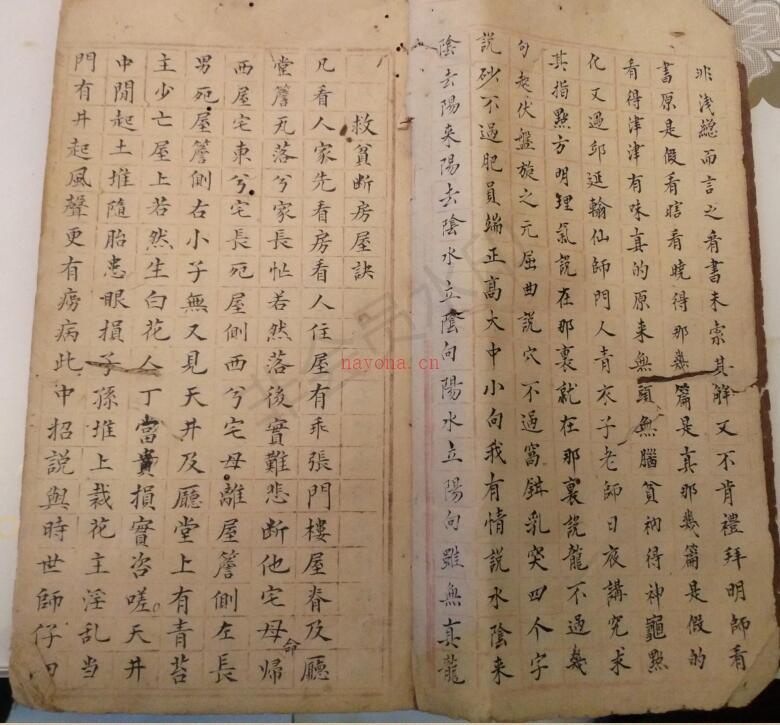 非浅總而言之看書未索其解又不肯禮拜明師看
書原是假看瞎看曉得那幾篇是真那幾篇是假的
看得津津有味真的原來無頭無腦貧衲得神龜點
化又遇邱延翰仙師門人青衣子老師日夜講究求
其指點方明理氣說在那裏就在那裏說龍不過幾
句起伏盤旋之元屈曲說穴不過窩鉗乳突四个字
說砂不過肥員端正高大中小向我有情說水陰來
陰去陽来陽去陰水立陰向陽水立陽向雖無真龍
救貧断房屋訣
凡看人家先看房看人住屋有乖張門樓屋脊及廳
堂簷无落兮家長怔若然落後實難悲断他宅母命歸
西屋宅東兮宅長死屋側西兮宅母離屋簷側左長
男死屋簷側右小子無又見天井及廳堂上有青苔
主少亡屋上若然生白花人丁當貴損實咨嗟天井
中間起土堆隨胎患眼損子孫堆上栽花主淫乱当
門有井起風聲更有癆病此中招説與時世師仔
nayona.cn